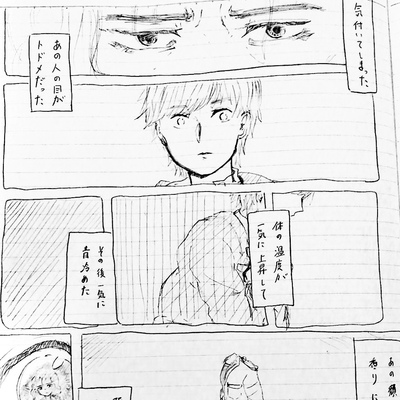 気付いてしまった
あの人の目が
トドメだった
体の温度が
一気に上昇して
その後一気に
青冷めた
あの
香りに